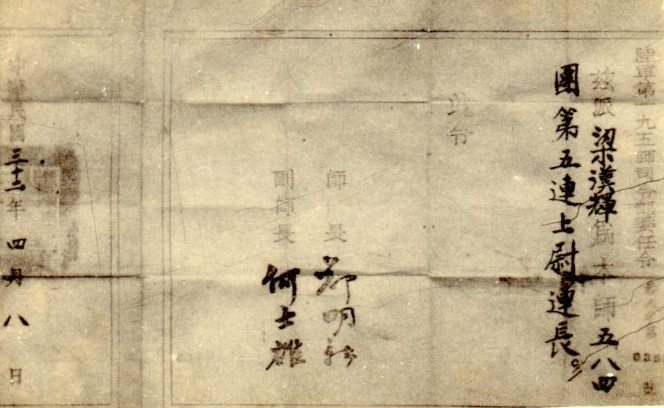 陸軍第一九五師司令部委任令
茲派梁漢輝為本師五八四
團第五連上尉連長。
此令
師長 鄭明新
副師長 何士雄
中華民國三十二年四月八日